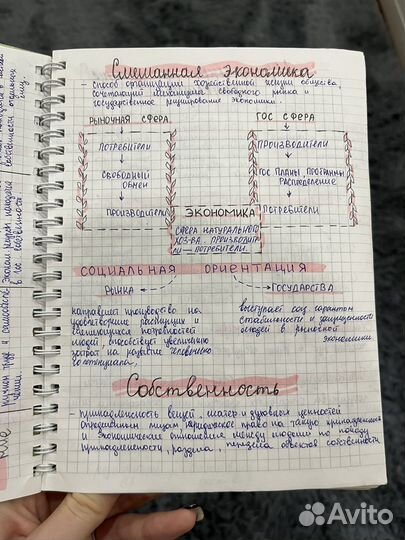 Смешанная экономика
- способ организации хозяйственной жизни общества,
сочетающий механизмы свободного рынка и
государственное регулирование экономики.
РЫНОЧНАЯ СФЕРА
ГОС СФЕРА
ПОТРЕБИТЕЛИ
ПРОИЗВОДИТЕЛИ
СВОБОДНЫЙ
ОБМЕН
ГОС ПЛАНЫ, ПРОГРАММЫ
РАСПРЕДЕЛЕНИЕ
ПРОИЗВОДИТЕЛИ
ПОТРЕБИТЕЛИ
ЭКОНОМИКА
СФЕРА НАТУРАЛЬНОГО
ХОЗ-ВА. ПРОИЗВОДИТЕ
ЛИ — ПОТРЕБИТЕЛИ.
СОЦИАЛЬНАЯ ОРИЕНТАЦИЯ
РЫНКА
ГОСУДАРСТВА
направляет производство на
удовлетворение растущих и
меняющихся потребностей
людей, способствует увеличению
затрат на развитие человечес
потенциала,
выступает соц гарантом
стабильности и защищенности
людей в рыночной
экономике
Собственность
- принадлежность вещей, матер и духовных ценностей
определенным лицам, юридическое право на такую принадлежн
и экономические отношения между людьми по поводу
принадлежности, раздела, передела объектов собственности
Avito